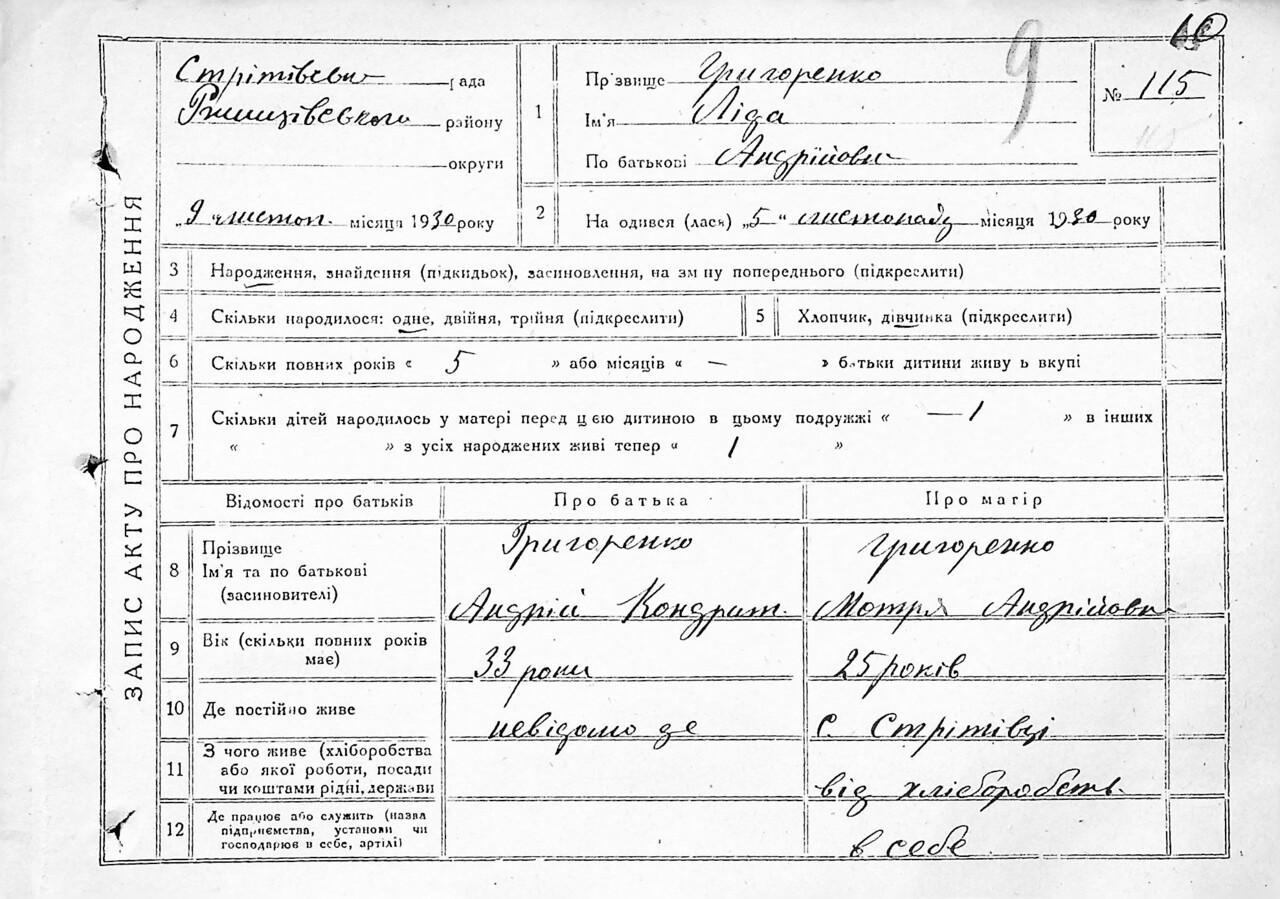 10
9
ЗАПИС АКТУ ПРО НАРОДЖЕННЯ
Стрітівська рада
Ржищівського району
округи
„9 листоп. місяця 1930 року
1
Пр'звище Григоренко
Ім'я Ліда
По батькові Андрійовн
№ 115
2
На одився (лася) „5“ листопаду місяця 1930 року
3 Народження, знайдення (підкидьок), засиновлення, на зм ну попереднього (підкреслити)
4 Скільки народилося: одне, двійня, трійня (підкреслити)
5 Хлопчик, дівчинка (підкреслити)
6 Скільки повних років « 5 » або місяців « — » батьки дитини живу ь вкупі
7 Скільки дітей народилось у матері перед цією дитиною в цьому подружжі « — 1 » в інших
« » з усіх народжених живі тепер « 1 »
Відомості про батьків
Про батька
Про матір
8 Прізвище
Ім'я та по батькові
(засиновителі)
Григоренко
Андрій Кондрат.
Григоренко
Мотря Андрійовн
9 Вік (скільки повних років
має)
33 роки
25 років
10 Де постійно живе
невідомо де
с. Стрітівці
11 З чого живе (хліборобства
або якої роботи, посади
чи коштами рідні, держави
від хлібороб́ств.
12 Де працює або служить (назва
підприємства, установи чи
господарює в себе, артілі)
в себе